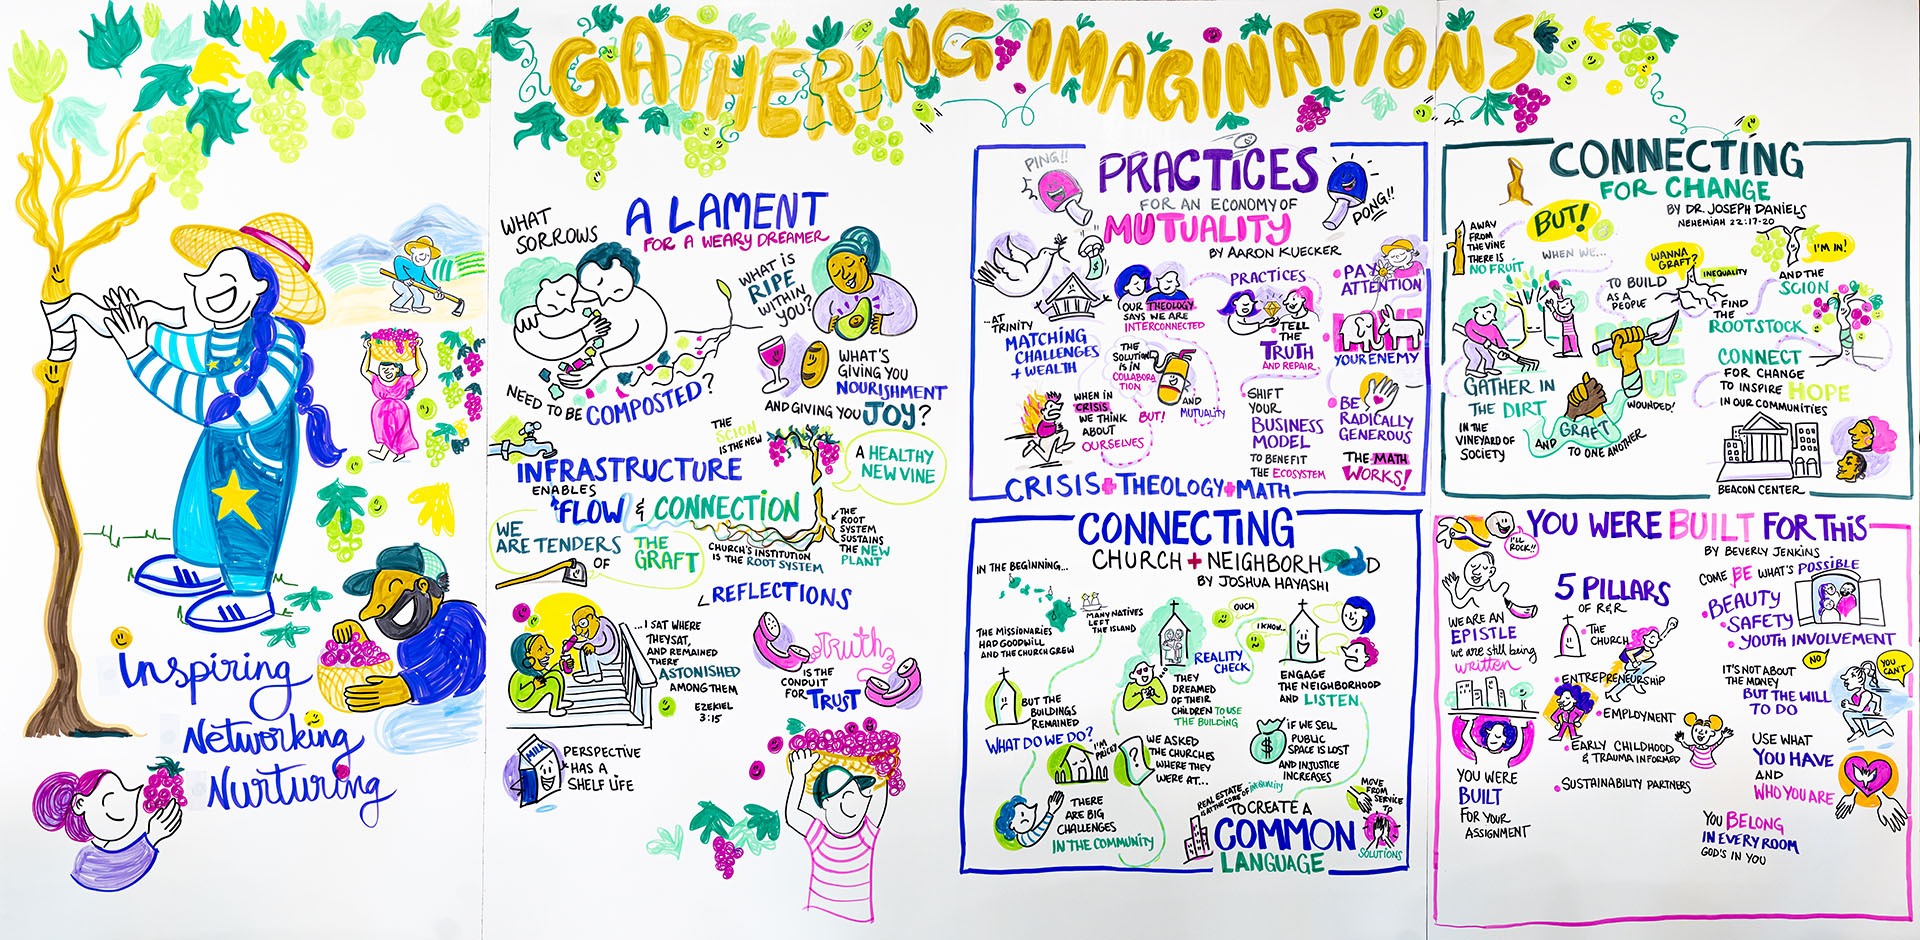 GATHERING IMAGINATIONS
Inspiring
Networking
Nurturing
A LAMENT
FOR A WEARY DREAMER
WHAT
SORROWS
NEED TO BE COMPOSTED?
WHAT IS
RIPE
WITHIN
YOU?
WHAT'S
GIVING YOU
NOURISHMENT
AND GIVING YOU JOY?
THE
SCION
IS THE NEW
A HEALTHY
NEW VINE
INFRASTRUCTURE
ENABLES
FLOW & CONNECTION
WE
ARE TENDERS
OF
THE
GRAFT
CHURCH'S INSTITUTION
IS THE ROOT SYSTEM
THE
ROOT
SYSTEM
SUSTAINS
THE NEW
PLANT
REFLECTIONS
...I SAT WHERE
THEY SAT,
AND REMAINED
THERE
ASTONISHED
AMONG THEM
EZEKIEL
3:15
Truth
IS THE
CONDUIT
FOR TRUST
MILK
PERSPECTIVE
HAS A
SHELF LIFE
PING!!
PRACTICES
FOR AN ECONOMY OF
MUTUALITY
BY AARON KUECKER
PONG!!
...AT
TRINITY
MATCHING
CHALLENGES
+ WEALTH
OUR THEOLOGY
SAYS WE ARE
INTERCONNECTED
PRACTICES
PAY
ATTENTION
TELL
THE
TRUTH
AND REPAIR
LOVE
YOUR ENEMY
THE
SOLUTION
IS IN
COLLABORA
TION
AND
MUTUALITY
WHEN IN
CRISIS
WE THINK
ABOUT
OURSELVES
BUT!
SHIFT
YOUR
BUSINESS
MODEL
TO BENEFIT
THE ECOSYSTEM
BE
RADICALLY
GENEROUS
THE MATH
WORKS!
CRISIS+THEOLOGY+MATH
CONNECTING
CHURCH + NEIGHBORHOOD
BY JOSHUA HAYASHI
IN THE BEGINNING...
MANY NATIVES
LEFT
THE ISLAND
THE MISSIONARIES
HAD GOODWILL
AND THE CHURCH GREW
OUCH
I KNOW...
REALITY
CHECK
ENGAGE
THE NEIGHBORHOOD
AND LISTEN
BUT THE
BUILDINGS
REMAINED
THEY
DREAMED
OF THEIR
CHILDREN TO USE
THE BUILDING
WHAT DO WE DO?
I'M
PRICEY
WE ASKED
THE CHURCHES
WHERE THEY
WERE AT...
IF WE SELL
PUBLIC
SPACE IS LOST
AND INJUSTICE
INCREASES
THERE
ARE BIG
CHALLENGES
IN THE COMMUNITY
REAL ESTATE
IS AT THE CORE OF INEQUALITY
TO CREATE A
COMMON
LANGUAGE
MOVE
FROM
SERVICE
TO
SOLUTIONS
CONNECTING
FOR CHANGE
BY DR. JOSEPH DANIELS
NEHEMIAH 22:17-20
AWAY
FROM
THE VINE
THERE IS
NO FRUIT
BUT!
WHEN WE...
GATHER IN
THE DIRT
IN THE
VINEYARD OF
SOCIETY
TO BUILD
AS A
PEOPLE
WANNA
GRAFT?
INEQUALITY
I'M IN!
AND THE
SCION
FIND
THE
ROOTSTOCK
RISE
UP
WOUNDED!
AND GRAFT
TO ONE ANOTHER
CONNECT
FOR CHANGE
TO INSPIRE HOPE
IN OUR COMMUNITIES
BEACON CENTER
I'LL
ROCK!!
YOU WERE BUILT FOR THIS
BY BEVERLY JENKINS
WE ARE AN
EPISTLE
we are still being
written
5 PILLARS
OF R&R
THE
CHURCH
ENTREPRENEURSHIP
EMPLOYMENT
EARLY CHILDHOOD
& TRAUMA INFORMED
SUSTAINABILITY PARTNERS
YOU WERE
BUILT
FOR YOUR
ASSIGNMENT
COME BE WHAT'S POSSIBLE
BEAUTY
SAFETY
YOUTH INVOLVEMENT
IT'S NOT ABOUT
THE MONEY
BUT THE WILL
TO DO
NO
YOU
CAN'T
USE WHAT
YOU HAVE
AND
WHO YOU ARE
YOU BELONG
IN EVERY ROOM
GOD'S IN YOU